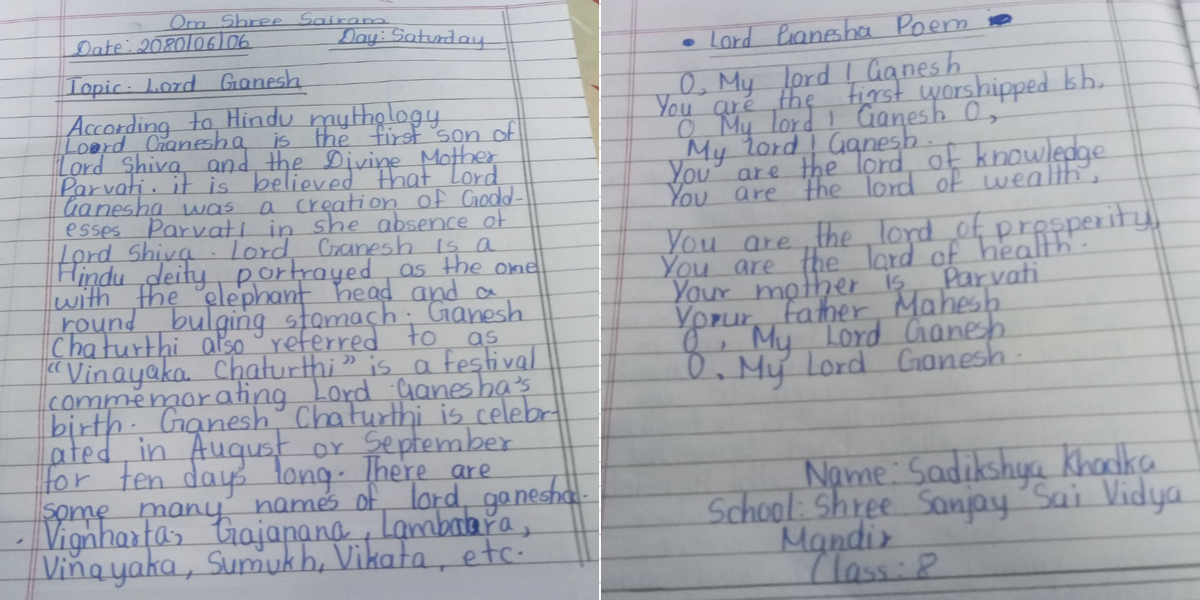 Om Shree Sairam
Date: 2080/06/06 Day: Saturday
Topic: Lord Ganesh
According to Hindu mythology
Loord Ganesha is the first son of
Lord Shiva and the Divine Mother
Parvati. it is believed that Lord
Ganesha was a creation of Godd-
esses Parvati in she absence of
Lord Shiva. Lord Ganesh is a
Hindu deity portrayed as the one
with the elephant head and a
round bulging stomach. Ganesh
Chaturthi also referred to as
"Vinayaka Chaturthi" is a festival
commemorating Lord Ganesha's
birth. Ganesh Chaturthi is celebr-
ated in August or September
for ten days long. There are
some many names of lord ganesha.
Vignharta, Gajanana, Lambabara,
Vinayaka, Sumukh, Vikata, etc.
• Lord Ganesha Poem
O, My lord ! Ganesh
You are the first worshipped
O My lord ! Ganesh O,
My lord ! Ganesh.
You are the lord of knowledge
You are the lord of wealth,
You are the lord of prosperity,
You are the lord of health.
Your mother is Parvati
Your father Mahesh
O, My Lord Ganesh
O, My Lord Ganesh.
Name: Sadikshya Khadka
School: Shree Sanjay Sai Vidya
Mandir
Class: 8